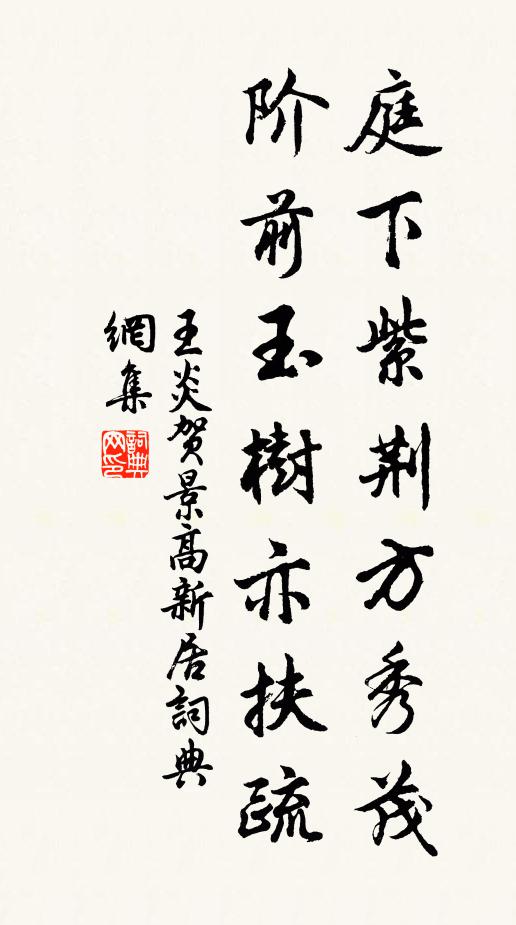 庭下紫荆方秀茂
阶前玉樹亦扶疏
王炎贺景高新居詞典
網集
詞典网印